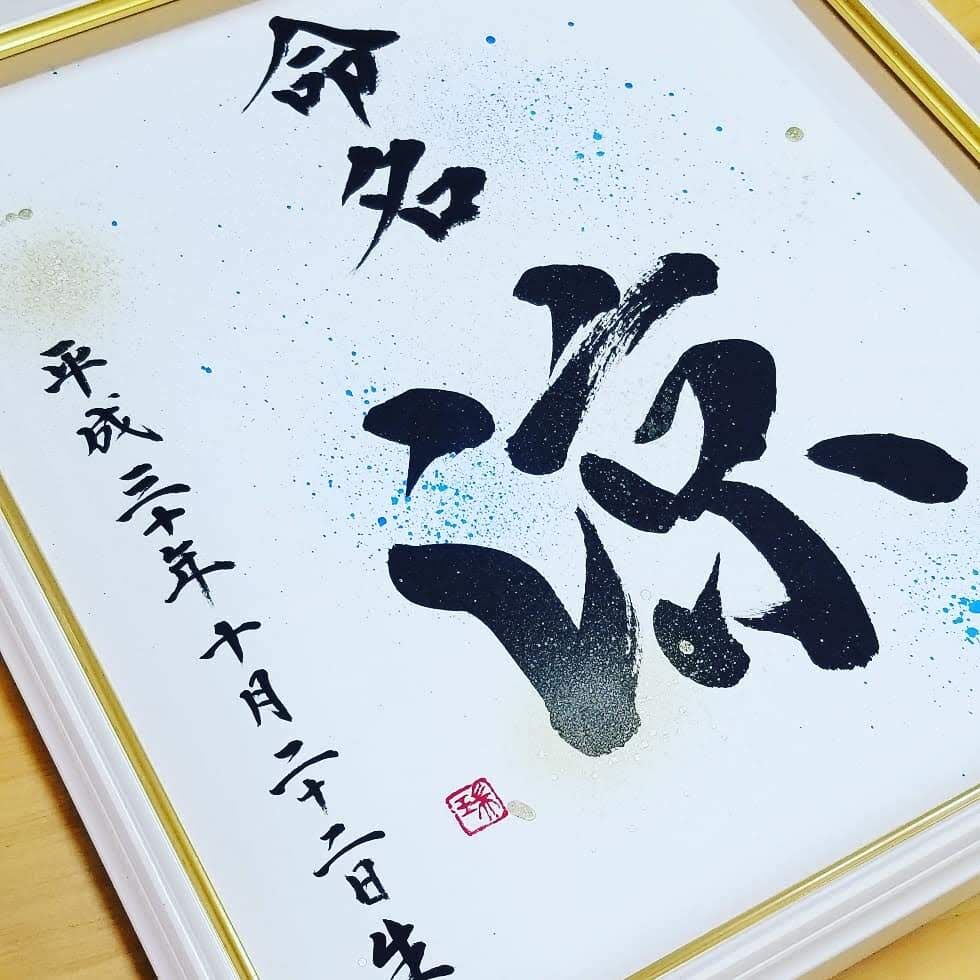 命名
涼
平成三十年十月二十二日生